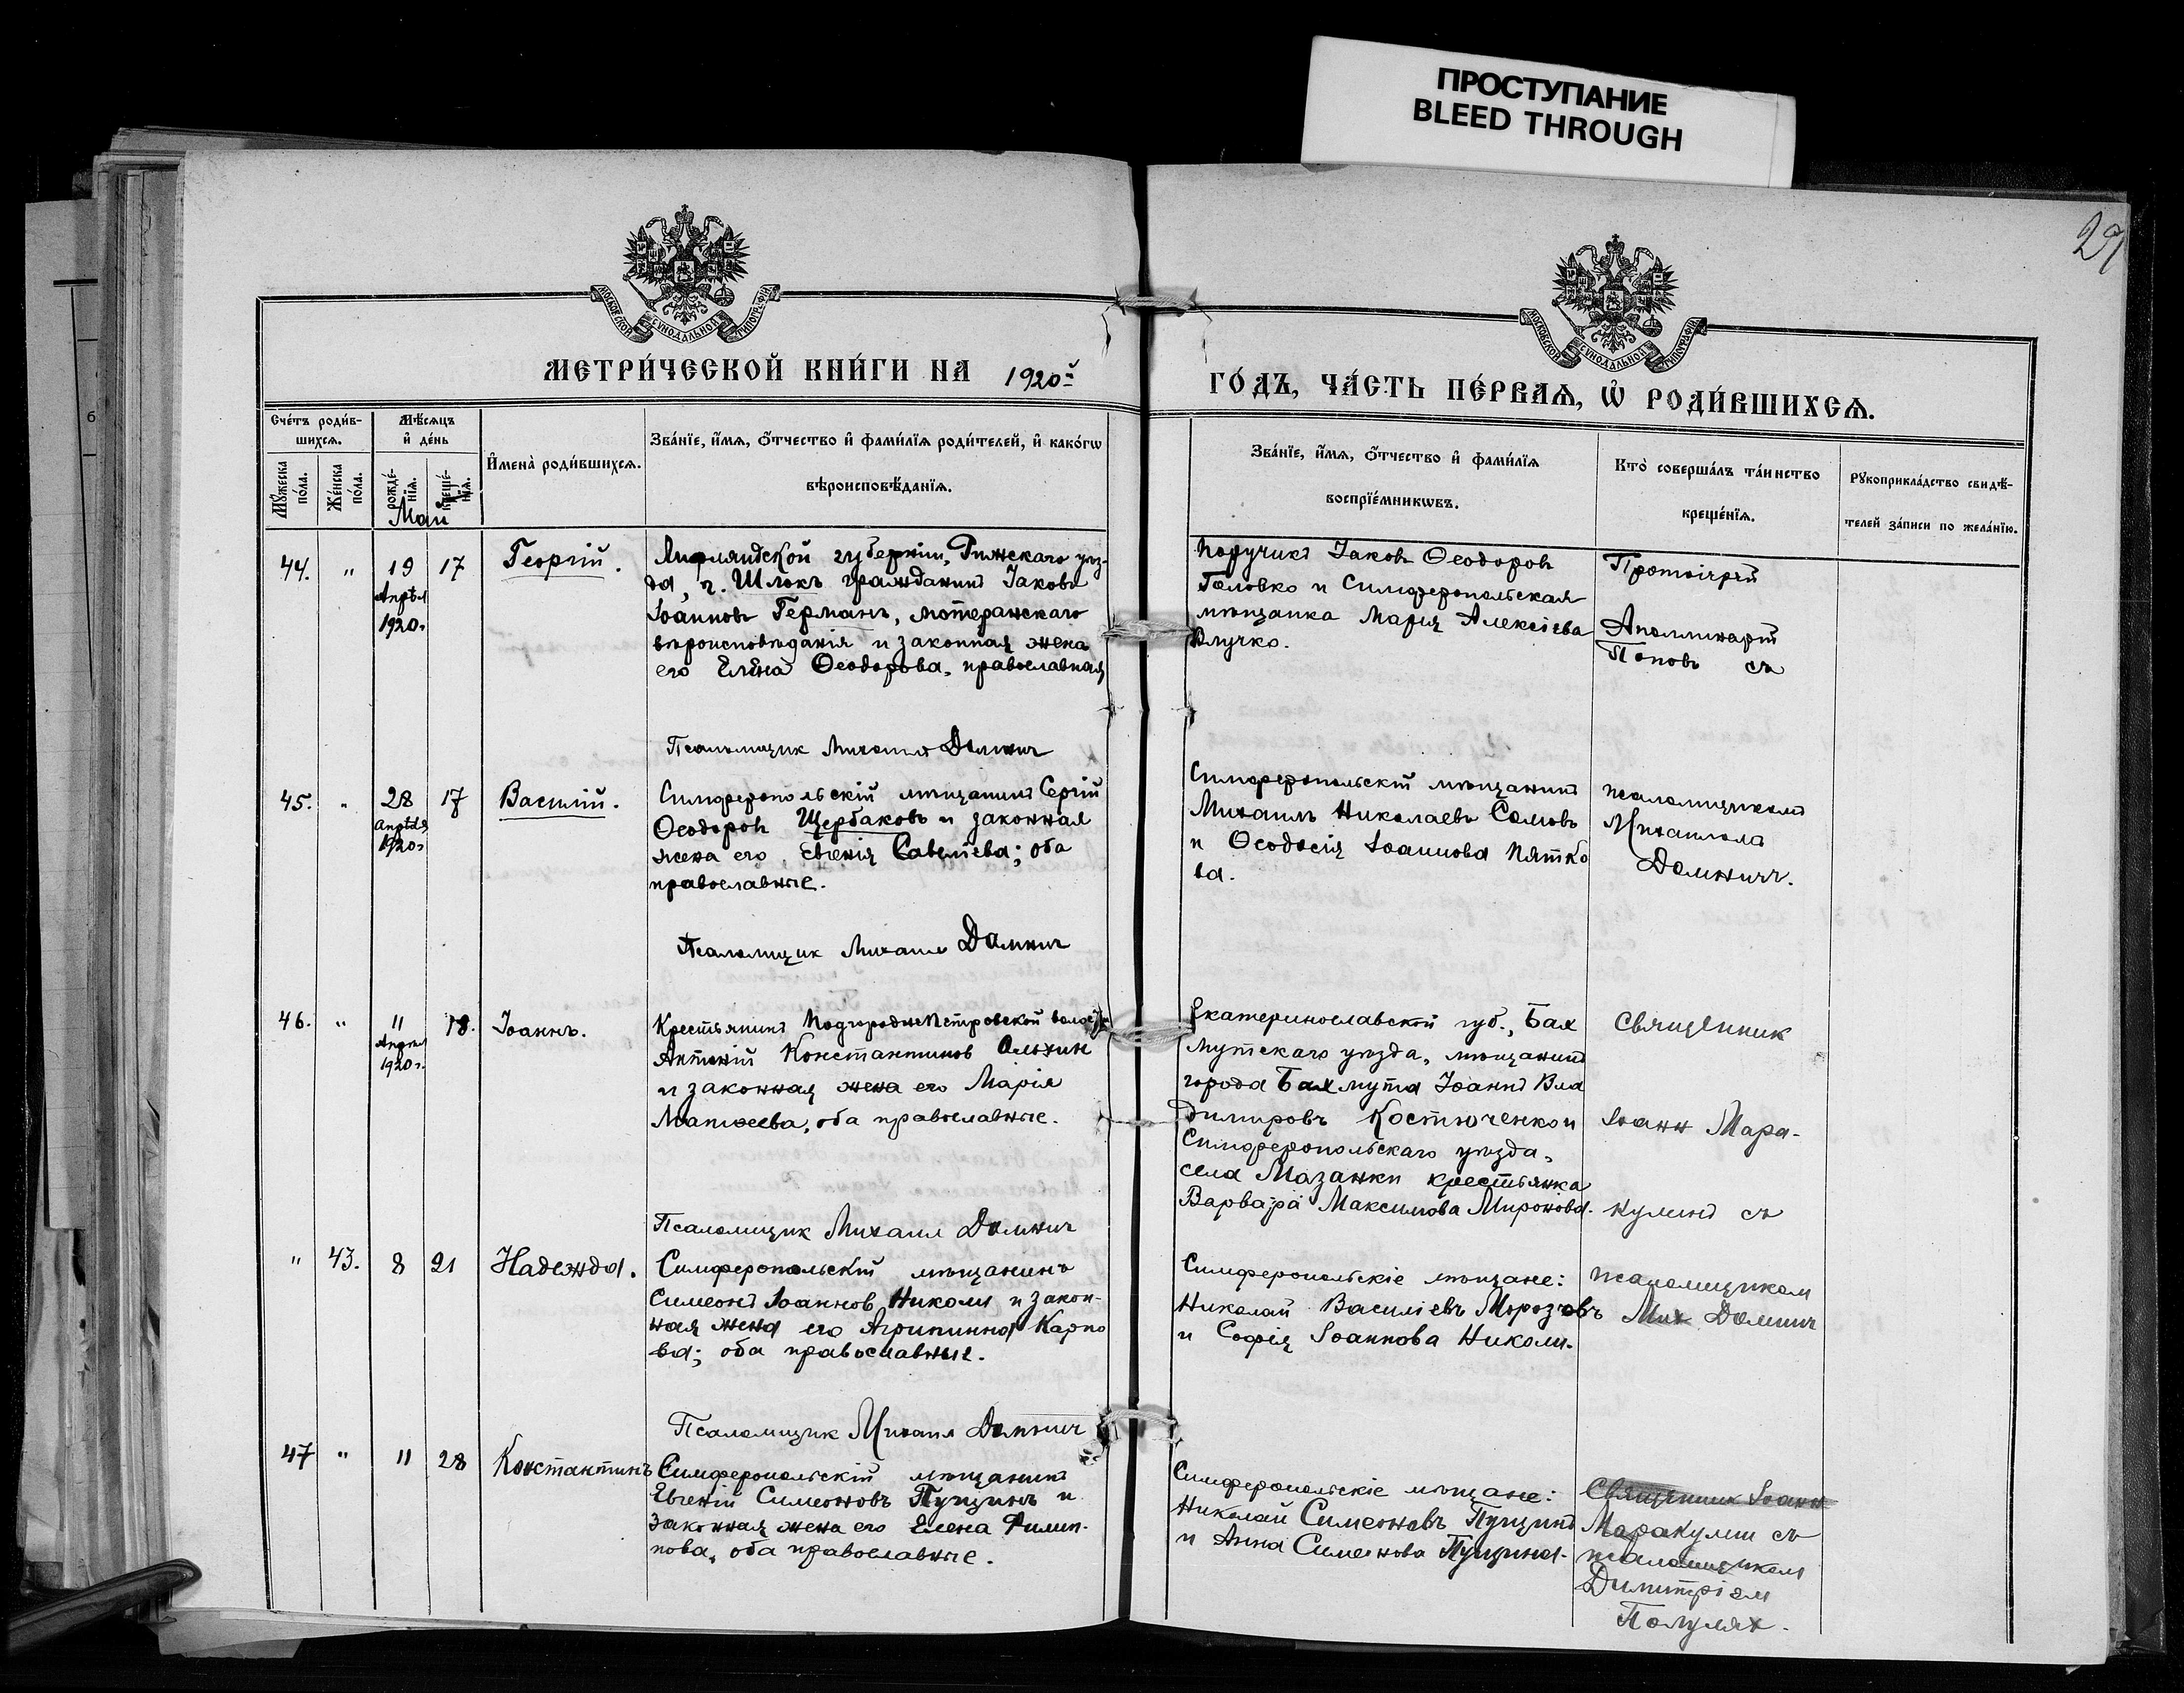 ПРОСТУПАНИЕ
BLEED THROUGH
29
МОСКОВСКОЙ СУНОДАЛЬНОЙ ТИПОГРАФІИ
МОСКОВСКОЙ СУНОДАЛЬНОЙ ТИПОГРАФІИ
МЕТРИ́ЧЕСКОЙ КНИ́ГИ НА 1920й
ГО́ДЪ, ЧА́СТЬ ПЕ́РВАѦ, Ѡ҆ РОДИ́ВШИХСѦ.
Сче́тъ роди́в-
шихсѧ.
Мꙋ́жеска по́ла.
Же́нска по́ла.
Мѣ́сѧцъ
и҆ де́нь
рожде́-
нїѧ.
креще́-
нїѧ.
Май
И҆мена̀ роди́вшихсѧ.
Зва́нїе, и҆́мѧ, ѻ҆́тчество и҆ фами́лїѧ роди́телей, и҆ како́гѡ
вѣроисповѣ́данїѧ.
Зва́нїе, и҆́мѧ, ѻ҆́тчество и҆ фами́лїѧ
воспрїе́мникѡвъ.
Кто̀ соверша́лъ та́инство
креще́нїѧ.
Рꙋкоприкла́дство свидѣ́-
телей за́писи по жела́нїю.
44. " 19 17 Георгій.
Апрѣл
1920г
Лифляндской губерніи, Рижскаго уѣз-
да, г. Шлокъ гражданинъ Іаковъ
Іоанновъ Германъ, лютеранскаго
вѣроисповѣданія и законная жена
его Елена Ѳеодорова, православная
Псаломщик Михаил Домнич
Поручикъ Іаковъ Ѳеодоровъ
Головко и Симферопольская
мѣщанка Марія Алексіева
Протоіерей
Аполлинарій
Поповъ съ
45. " 28 17 Василій.
Апрѣля
1920г
Симферопольскій мѣщанинъ Сергій
Ѳеодоровъ Щербаковъ и законная
жена его Евгенія Савеліева; оба
православные.
Псаломщик Михаил Домнич
Симферопольскій мѣщанинъ
Михаилъ Николаевъ Сомовъ
и Ѳеодосія Іоаннова Пятко
ва.
псаломщикомъ
Михаиломъ
Домничъ.
46. " 11 18. Іоаннъ.
Апрѣл
1920г.
Крестьянинъ Подгородне Петровской волости
Антоній Константинов Алехин
и законная жена его Марія
Матѳеева, оба православные.
Псаломщик Михаил Домнич
Екатеринославской губ., Бах
мутскаго уѣзда, мѣщанинъ
города Бахмута Іоаннъ Вла
димировъ Костюченко и
Симферопольскаго уѣзда,
села Мазанки крестьянка
Варвара Максимова Миронова.
Священник
Іоанн Мара-
кулинъ съ
" 43. 8 21 Надежда.
Симферопольскій мѣщанинъ
Симеонъ Іоаннов Николи и закон-
ная жена его Агрипинна Карпо
ва; оба православные.
Псаломщик Михаил Домнич
Симферопольскіе мѣщане:
Николай Василіевъ Морозовъ
и Софія Іоаннова Николи.
псаломщиком
Мих Домнич
47 " 11 28 Константинъ
Симферопольскій мѣщанинъ
Евгеній Симеоновъ Пущинъ и
законная жена его Елена Филип-
пова, оба православные.
Симферопольскіе мѣщане:
Николай Симеоновъ Пущинъ
и Анна Симеонова Пущина.
Священник Іоанн
Маракулин съ
псаломщиком
Димитріем
Полулях.